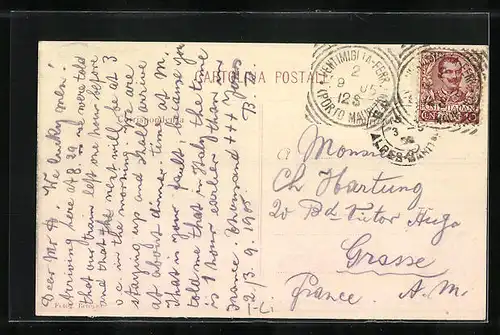 CARTOLINA POSTALE
Dear Mr H. We lucky men!
Arriving here at 8.30 we were told
that our train left one hour before
and that the next will be at 3
o.c. in the morning. We are
staying up and shall arrive
at about dinner time at M.
That is your fault because you
told me that in Italy the time
is 1 hour earlier than in
France. Thousand +++ Yours
2/3. 9. 1905 B.
VENTIMIGLIA
2
9 05
12 S
(PORTO MAURIZIO)
Monsieur
Ch Hartung
20 Bd Victor Hugo
Grasse
France. A. M.